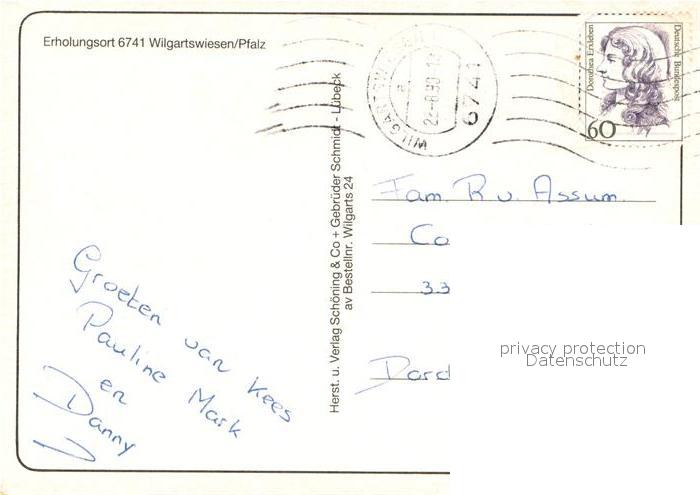 Erholungsort 6741 Wilgartswiesen/Pfalz
Groeten van Kees
Pauline Mark
en
Danny
Herst. u. Verlag Schöning & Co + Gebrüder Schmidt - Lübeck
av Bestellnr. Wilgarts 24
6741
Dorothea Erxleben
Deutsche Bundespost
60
Fam. R v. Assum.
Co
33
Dord
privacy protection
Datenschutz